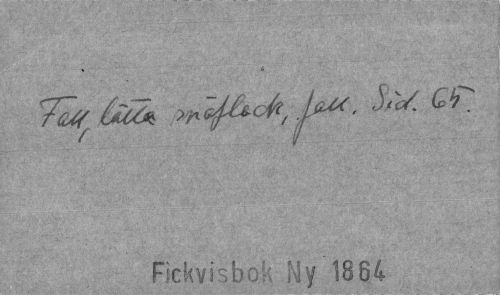 Fall, lätta snöflock, fall. Sid. 65.
Fickvisbok Ny 1864